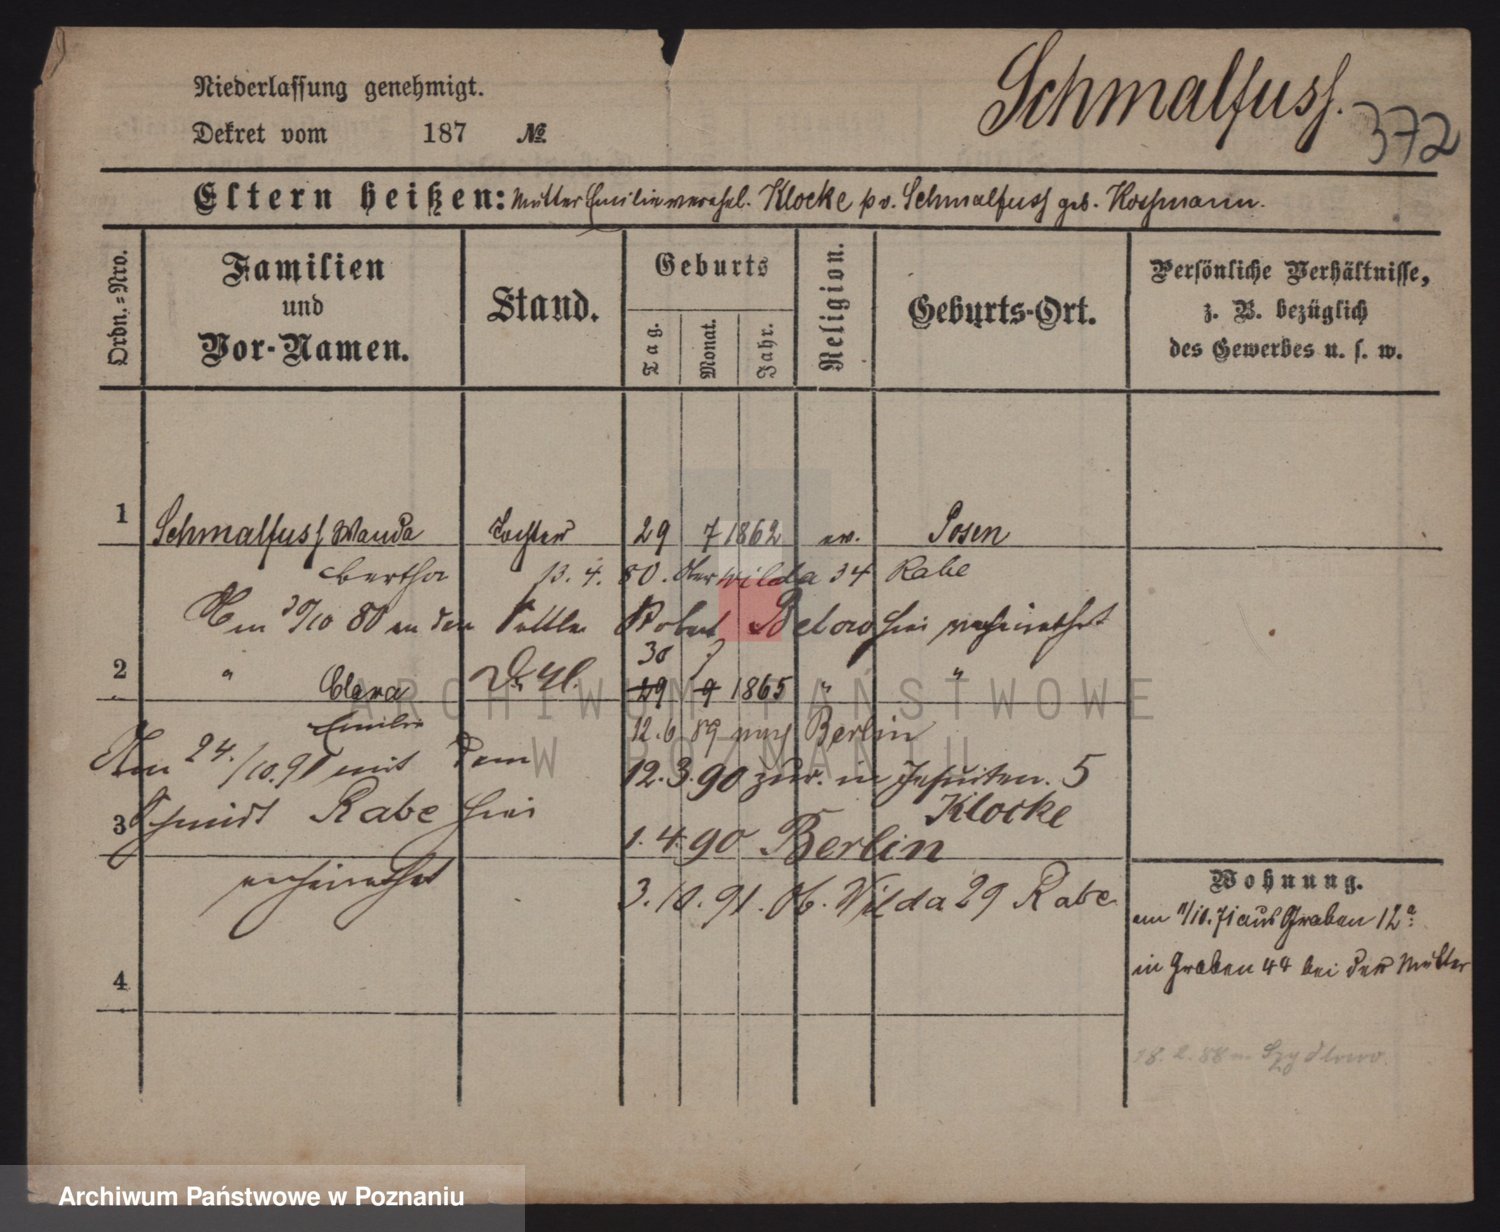 Niederlassung genehmigt.
Dekret vom 187 №
Schmalfuss.
372
Eltern heißen: Mutter Emilie verehel. Klocke pv. Schmalfuss geb. Hossmann.
Ordn.=Nro.
Familien
und
Vor-Namen.
Stand.
Geburts
Tag.
Monat.
Jahr.
Religion.
Geburts-Ort.
Persönliche Verhältnisse,
z. B. bezüglich
des Gewerbes u. s. w.
1 Schmalfuss Wanda Tochter 29 7 1862 ev. Posen
Bertha 13. 4. 80. Ober Wilda 34 Rabe
Am 30/10 80 an den Robert hier verheirathet
30 7
2 " Clara 29 9 1865 " "
Emilie 12. 6 89 nach Berlin
Am 24./10. 91 mit dem 12. 3. 90 zur. in Jesuiten. 5
Klocke
3 Schmidt Rabe hier 1. 4. 90 Berlin
verheirathet 3. 10. 91. Ob. Wilda 29 Rabe
4
Wohnung.
am 1/10. 71 aus Graben 12a.
in Graben 44 bei der Mutter
18. 2. 88 n. Szydlowo.
ARCHIWUM PAŃSTWOWE
W POZNANIU
Archiwum Państwowe w Poznaniu